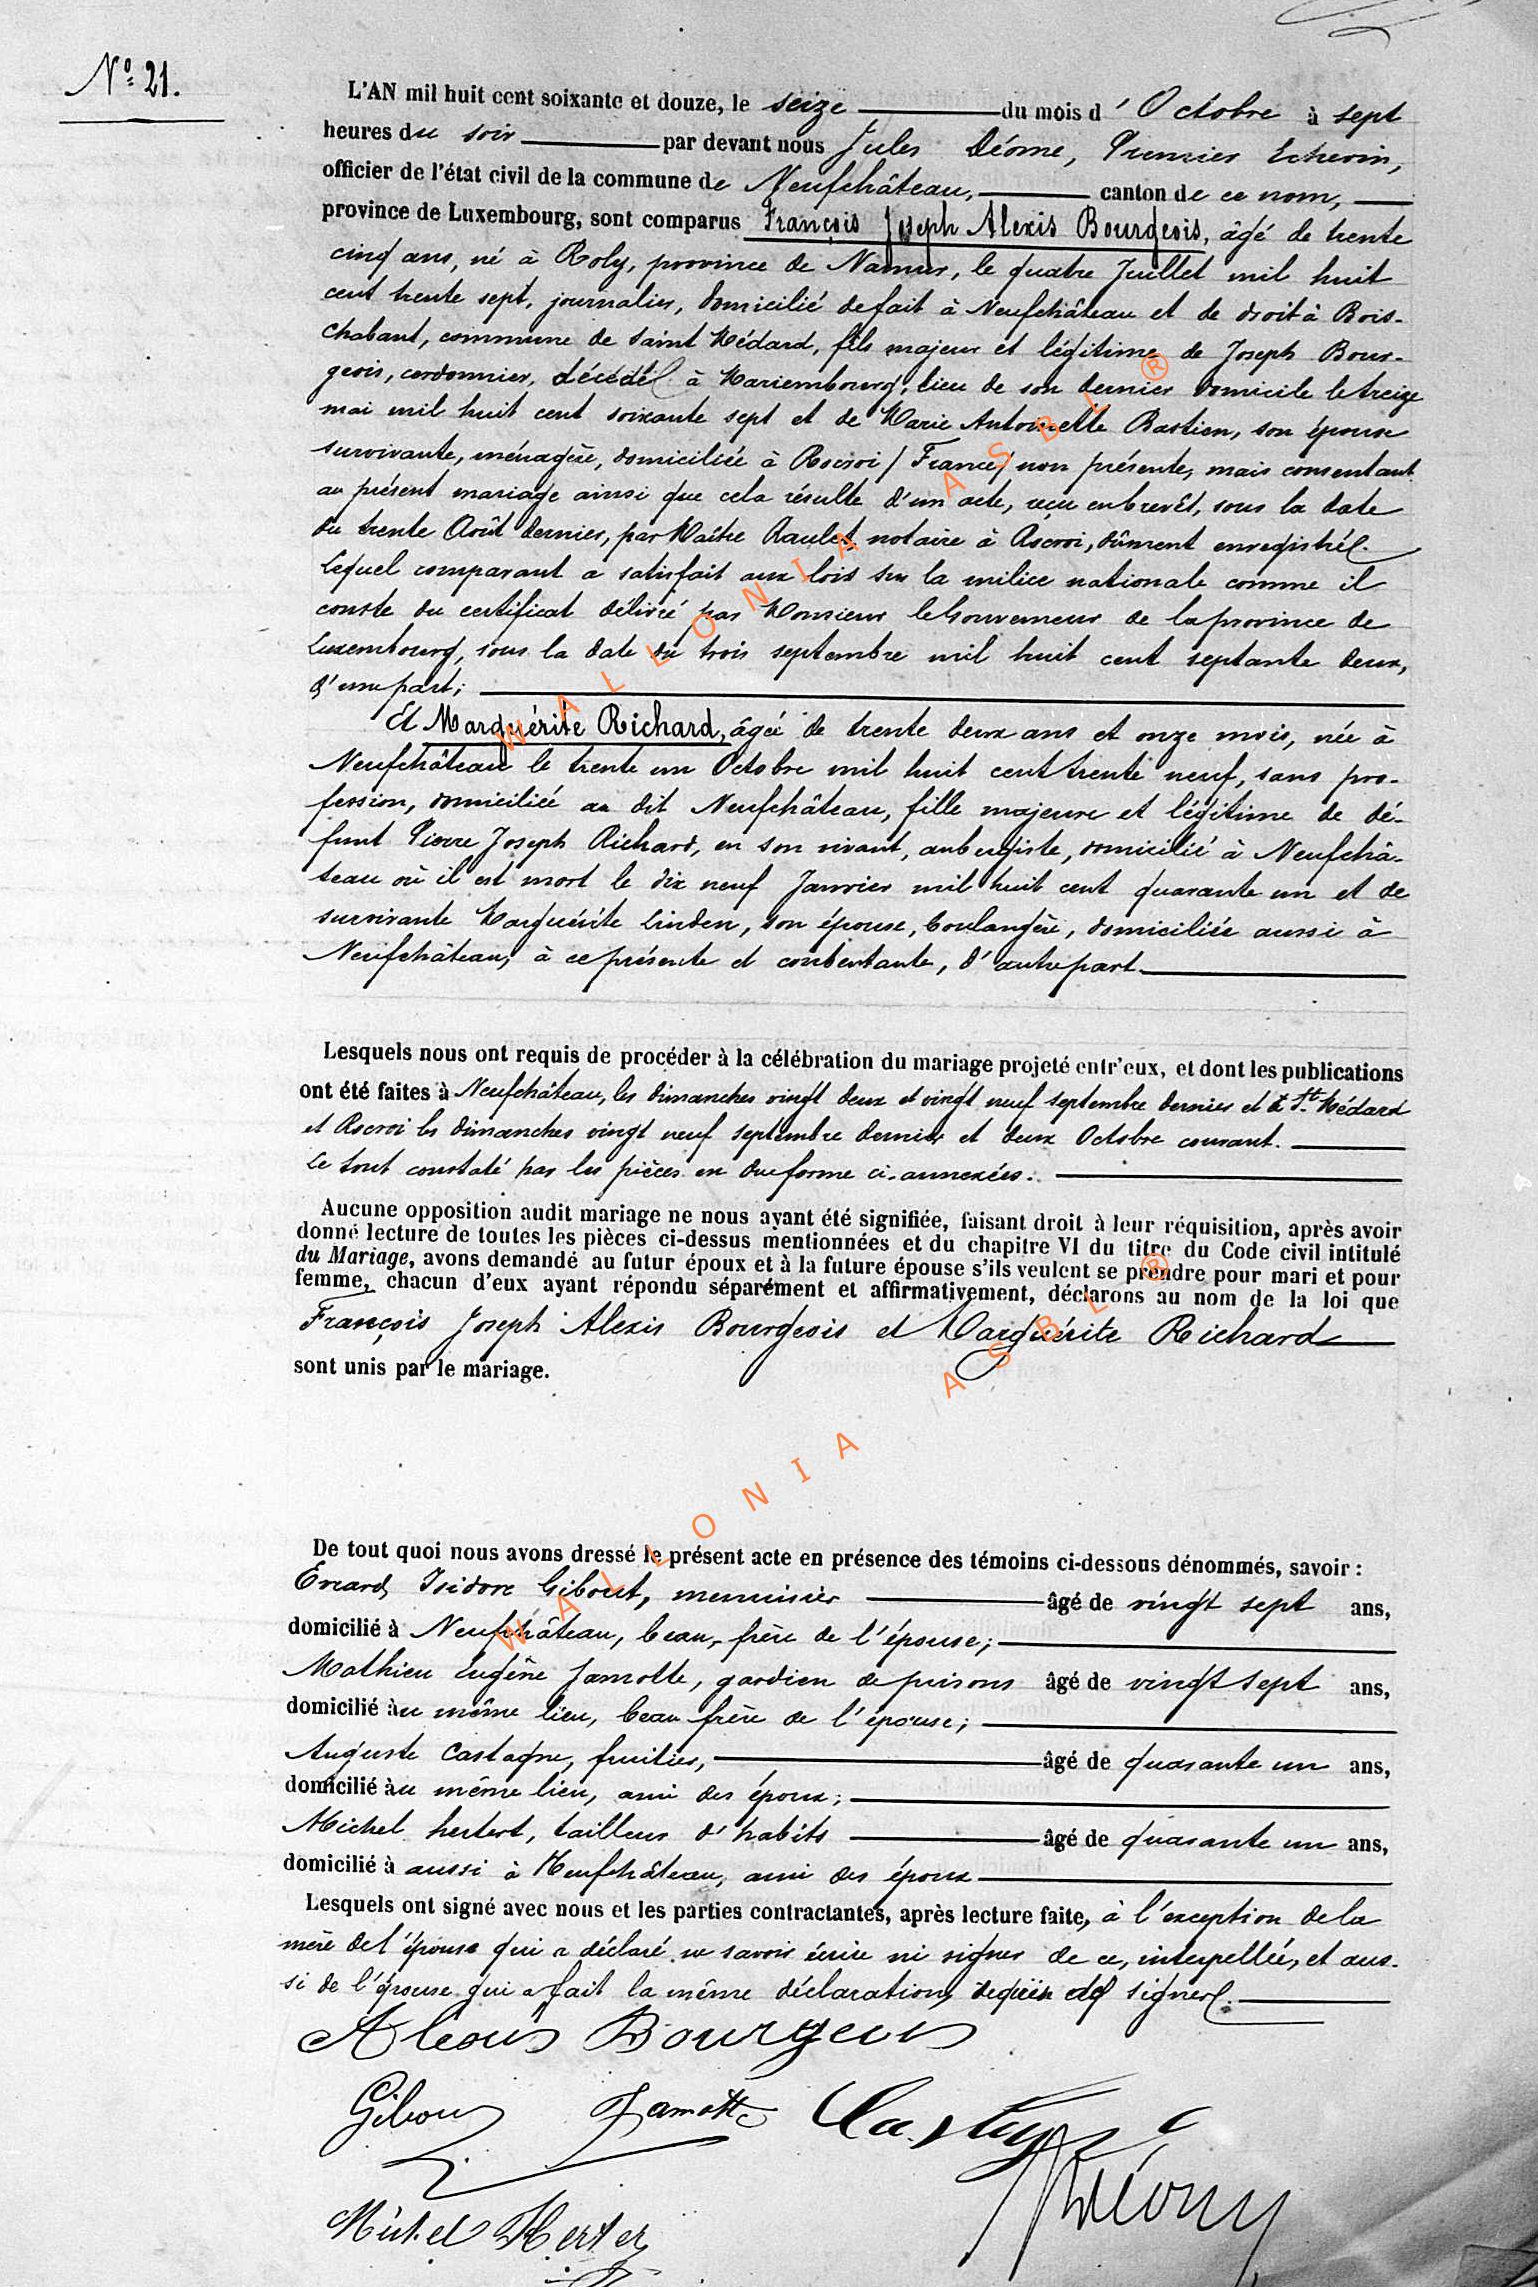 Nº 21.
L'AN mil huit cent soixante et douze, le seize du mois d'Octobre à sept
heures du soir par devant nous Jules Déome, Premier Echevin,
officier de l'état civil de la commune de Neufchâteau, canton de ce nom,
province de Luxembourg, sont comparus François Joseph Alexis Bourgeois, âgé de trente
cinq ans, né à Roly, province de Namur, le quatre Juillet mil huit
cent trente sept, journalier, domicilié de fait à Neufchâteau et de droit à Bois-
chabant, commune de Saint Médard, fils majeur et légitime de Joseph Bour-
geois, cordonnier, décédé à Mariembourg, lieu de son dernier domicile le treize
mai mil huit cent soixante sept et de Marie Antoinette Bastien, son épouse
survivante, ménagère, domiciliée à Rocroi / France / non présente, mais consentant
au présent mariage ainsi que cela résulte d'un acte, reçu en brevêt, sous la date
du trente Août dernier, par Maître Raulet notaire à Rocroi, dûment enregistré.
Lequel comparant a satisfait aux lois sur la milice nationale comme il
conste du certificat délivré par Monsieur le Gouverneur de la province de
Luxembourg, sous la date du trois septembre mil huit cent septante deux,
d'une part;
Et Marguérite Richard, âgée de trente deux ans et onze mois, née à
Neufchâteau le trente un Octobre mil huit cent trente neuf, sans pro-
fession, domiciliée au dit Neufchâteau, fille majeure et légitime de dé-
funt Pierre Joseph Richard, en son vivant, aubergiste, domicilié à Neufchâ-
teau où il est mort le dix neuf Janvier mil huit cent quarante un et de
survivante Marguérite Linden, son épouse, boulangère, domiciliée aussi à
Neufchâteau, à ce présente et consentante, d'autre part.
Lesquels nous ont requis de procéder à la célébration du mariage projeté entr'eux, et dont les publications
ont été faites à Neufchâteau, les dimanches vingt deux et vingt neuf septembre dernier et à St. Médard
et Rocroi les dimanches vingt neuf septembre dernier et deux Octobre courant.
Le tout constaté par les pièces en due forme ci-annexées.
Aucune opposition audit mariage ne nous ayant été signifiée, faisant droit à leur réquisition, après avoir
donné lecture de toutes les pièces ci-dessus mentionnées et du chapitre VI du titre du Code civil intitulé
du Mariage, avons demandé au futur époux et à la future épouse s'ils veulent se prendre pour mari et pour
femme, chacun d'eux ayant répondu séparément et affirmativement, déclarons au nom de la loi que
François Joseph Alexis Bourgeois et Marguérite Richard
sont unis par le mariage.
De tout quoi nous avons dressé le présent acte en présence des témoins ci-dessous dénommés, savoir :
Evrard, Isidore Gibout, menuisier âgé de vingt sept ans,
domicilié à Neufchâteau, beau-frère de l'épouse;
Mathieu Eugène Jamotte, gardien de prisons âgé de vingt sept ans,
domicilié au même lieu, beau frère de l'épouse;
Auguste Castagne, fruitier, âgé de quarante un ans,
domicilié au même lieu, ami des époux;
Michel hertert, tailleur d'habits âgé de quarante un ans,
domicilié à aussi à Neufchâteau, ami des époux
Lesquels ont signé avec nous et les parties contractantes, après lecture faite, à l'exception de la
mère de l'épouse qui a déclaré ne savoir écrire ni signer de ce, interpellée, et aus-
si de l'épouse qui a fait la même déclaration, requise de signer.
Alexis Bourgeois
Gibout Jamotte Castagne
Déome
Michel Herter
WALLONIA ASBL ®
WALLONIA ASBL ®